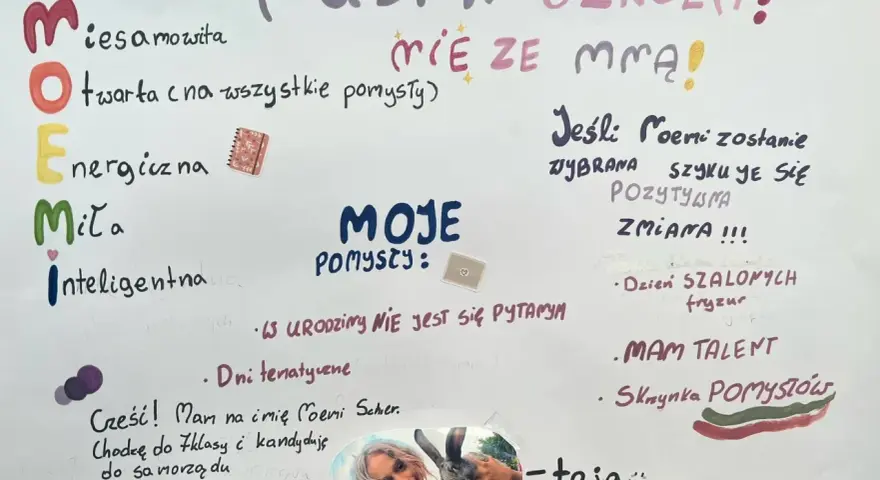 Niesamowita
NIE ZE MNĄ!
Otwarta (na wszystkie pomysły)
Jeśli Noemi zostanie
WYBRANA SZYKUJE SIĘ
POZYTYWNA
ZMIANA !!!
Energiczna
Miła
Inteligentna
MOJE
POMYSŁY:
· W URODZINY NIE JEST SIĘ PYTANYM
· Dni tematyczne
· Dzień SZALONYCH
fryzur
· MAM TALENT
· Skrzynka POMYSŁÓW
Cześć! Mam na imię Noemi Scher.
Chodzę do 7klasy i kandyduję
do samorządu